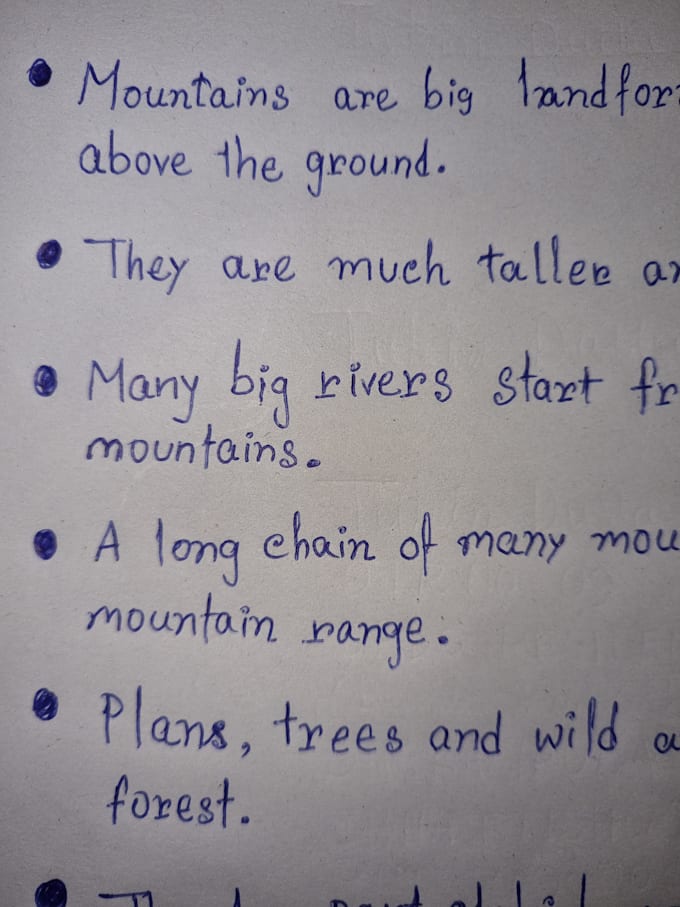 • Mountains are big landfor
above the ground.
• They are much taller a
• Many big rivers start fr
mountains.
• A long chain of many mou
mountain range.
• Plans, trees and wild a
forest.